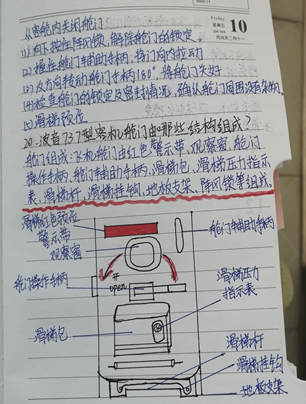 Friday
10
星期五
四月二十一
从客舱内关闭舱门
(1)向下按住阵风锁,解除舱门的锁定
(2)握住舱门辅助手柄,将门向内拉动
(3)反方向转动舱门手柄180°,将舱门关好
(4)检查舱门的锁定及密封情况,确认舱门周围没有夹物。
(5)滑梯预位
20、波音737型客机舱门由哪些结构组成?
舱门组成:飞机舱门由红色警示带、观察窗、舱门
操作手柄、舱门辅助手柄、滑梯包、滑梯压力指示
表、滑梯杆、滑梯挂钩、地板支架、阵风锁等组成。
滑梯红色预位
警示带
观察窗
舱门辅助手柄
舱门操作手柄
open
滑梯压力
指示表
滑梯包
滑梯杆
滑梯挂钩
地板支架